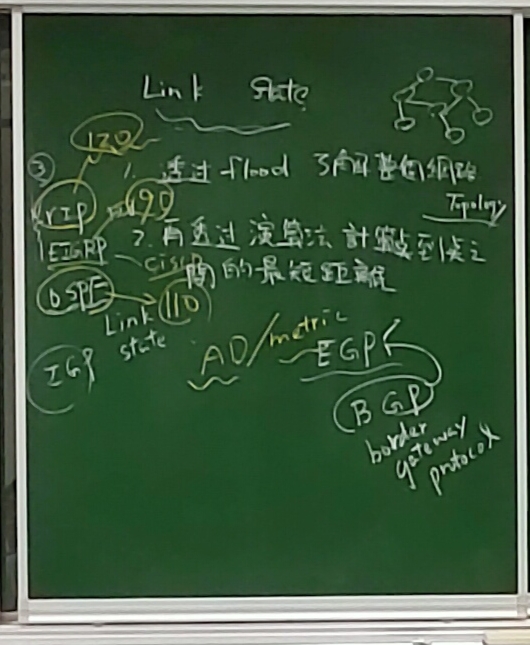 Link state
120
③
1. 透过 flood 了解整個網路
Topology
rIP
90
EIGRP
cisco
2. 再透过演算法計算点到点之
間的最短距離
OSPF
110
Link
state
IGP
AD/metric
EGP
BGP
border
gateway
protocol